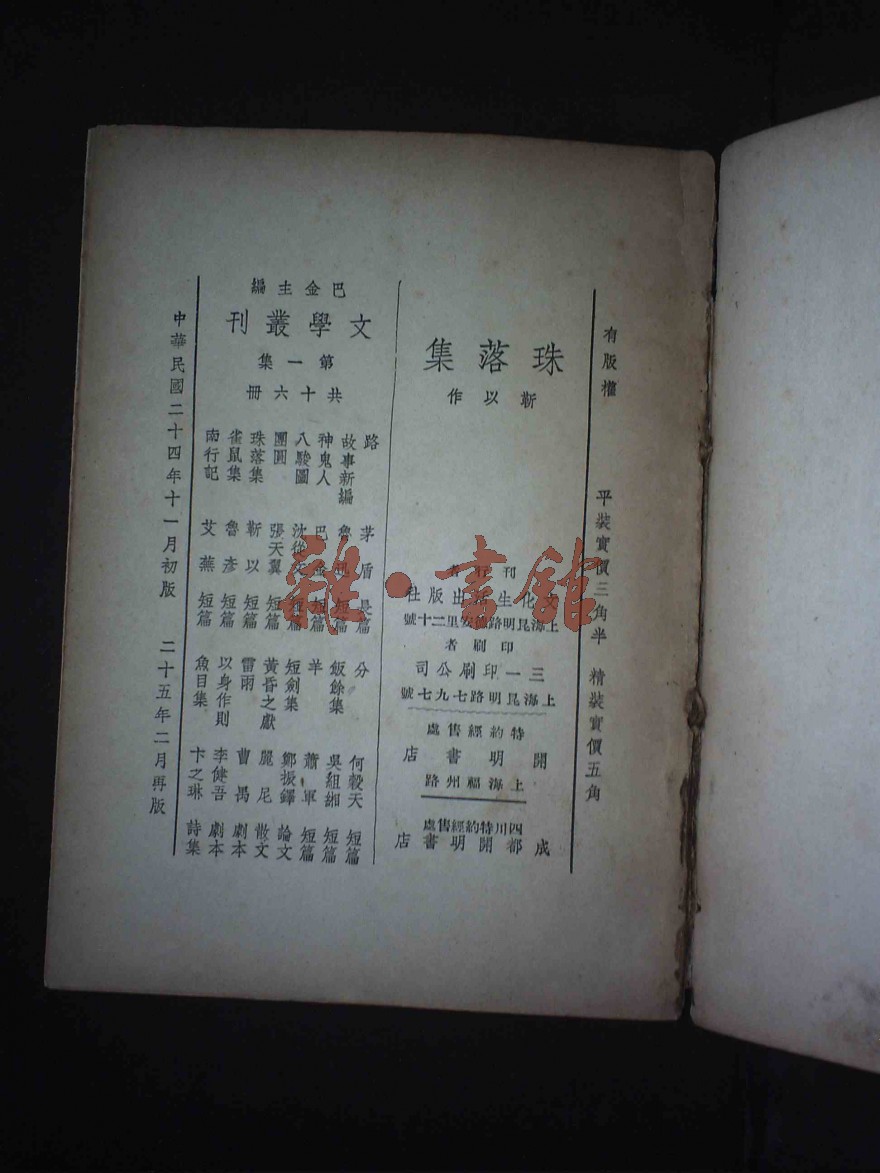 有版權
平裝實價三角半 精裝實價五角
珠落集
靳以作
刊行者
文化生活出版社
上海昆明路德安里二十號
印刷者
三一印刷公司
上海昆明路七九七號
特約經售處
開明書店
上海福州路
四川特約經售處
成都開明書店
巴金主編
文學叢刊
第一集
共十六冊
路 茅盾 長篇
故事新編 魯迅 短篇
神鬼人 巴金 短篇
八駿圖 沈從文 短篇
團圓 張天翼 短篇
珠落集 靳以 短篇
雀鼠集 魯彥 短篇
南行記 艾蕪 短篇
分 何穀天 短篇
飯餘集 吳組緗 短篇
羊 蕭軍 短篇
短劍集 鄭振鐸 論文
黃昏之獻 麗尼 散文
雷雨 曹禺 劇本
以身作則 李健吾 劇本
魚目集 卞之琳 詩集
中華民國二十四年十一月初版 二十五年二月再版
雜·書館